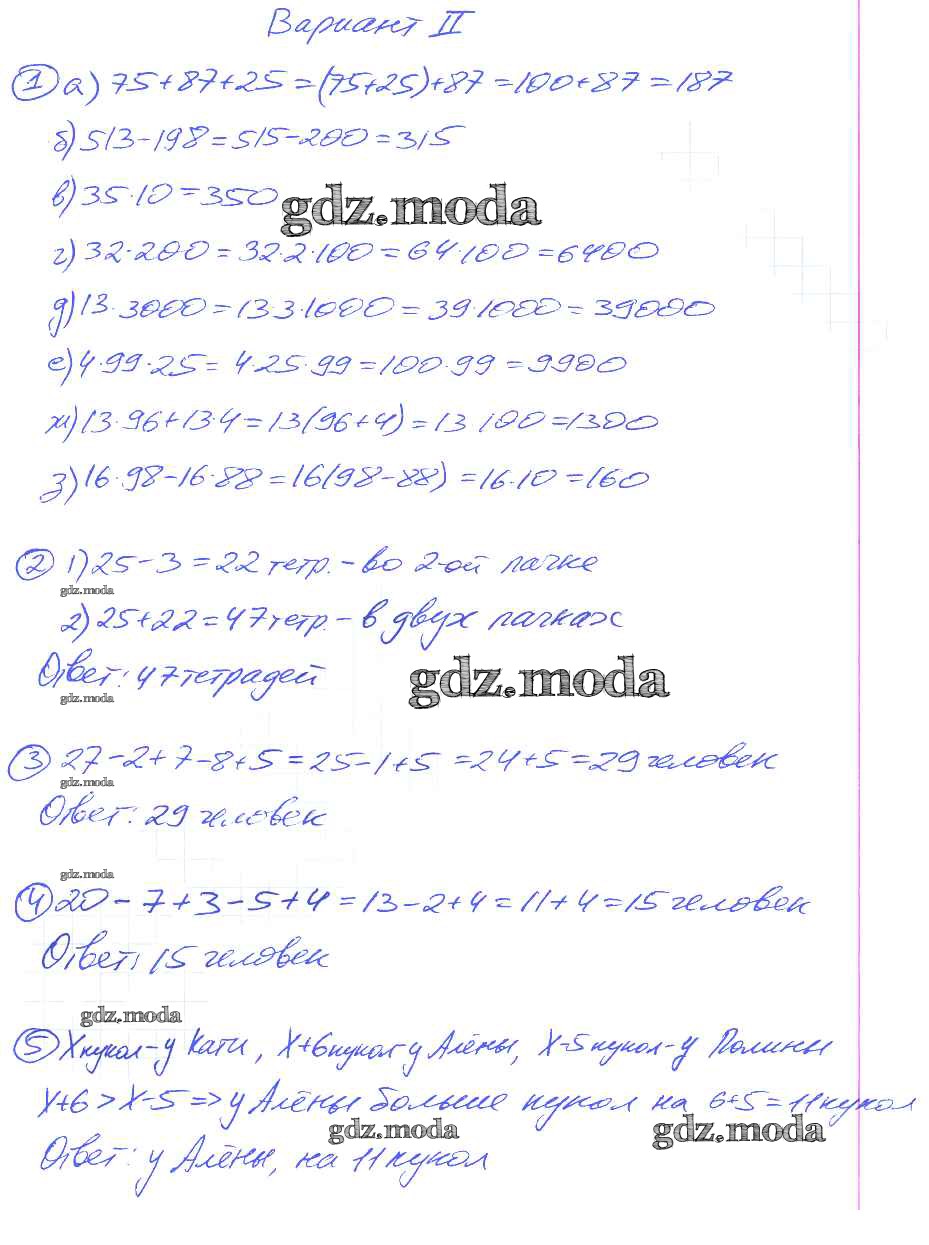 Вариант II
1 а) 75+87+25=(75+25)+87=100+87=187
б) 513-198=515-200=315
в) 35·10=350
gdz.moda
г) 32·200=32·2·100=64·100=6400
д) 13·3000=13·3·1000=39·1000=39000
е) 4·99·25=4·25·99=100·99=9900
ж) 13·96+13·4=13(96+4)=13·100=1300
з) 16·98-16·88=16(98-88)=16·10=160
2 1) 25-3=22 тетр. - во 2-ой пачке
gdz.moda
2) 25+22=47 тетр. - в двух пачках
Ответ: 47 тетрадей
gdz.moda
gdz.moda
3 27-2+7-8+5=25-1+5=24+5=29 человек
gdz.moda
Ответ: 29 человек
gdz.moda
4 20-7+3-5+4=13-2+4=11+4=15 человек
Ответ: 15 человек
gdz.moda
5 X кукол - у Кати, X+6 кукол у Алёны, X-5 кукол - у Полины
X+6>X-5 => у Алёны больше кукол на 6+5=11 кукол
gdz.moda
gdz.moda
Ответ: у Алёны, на 11 кукол